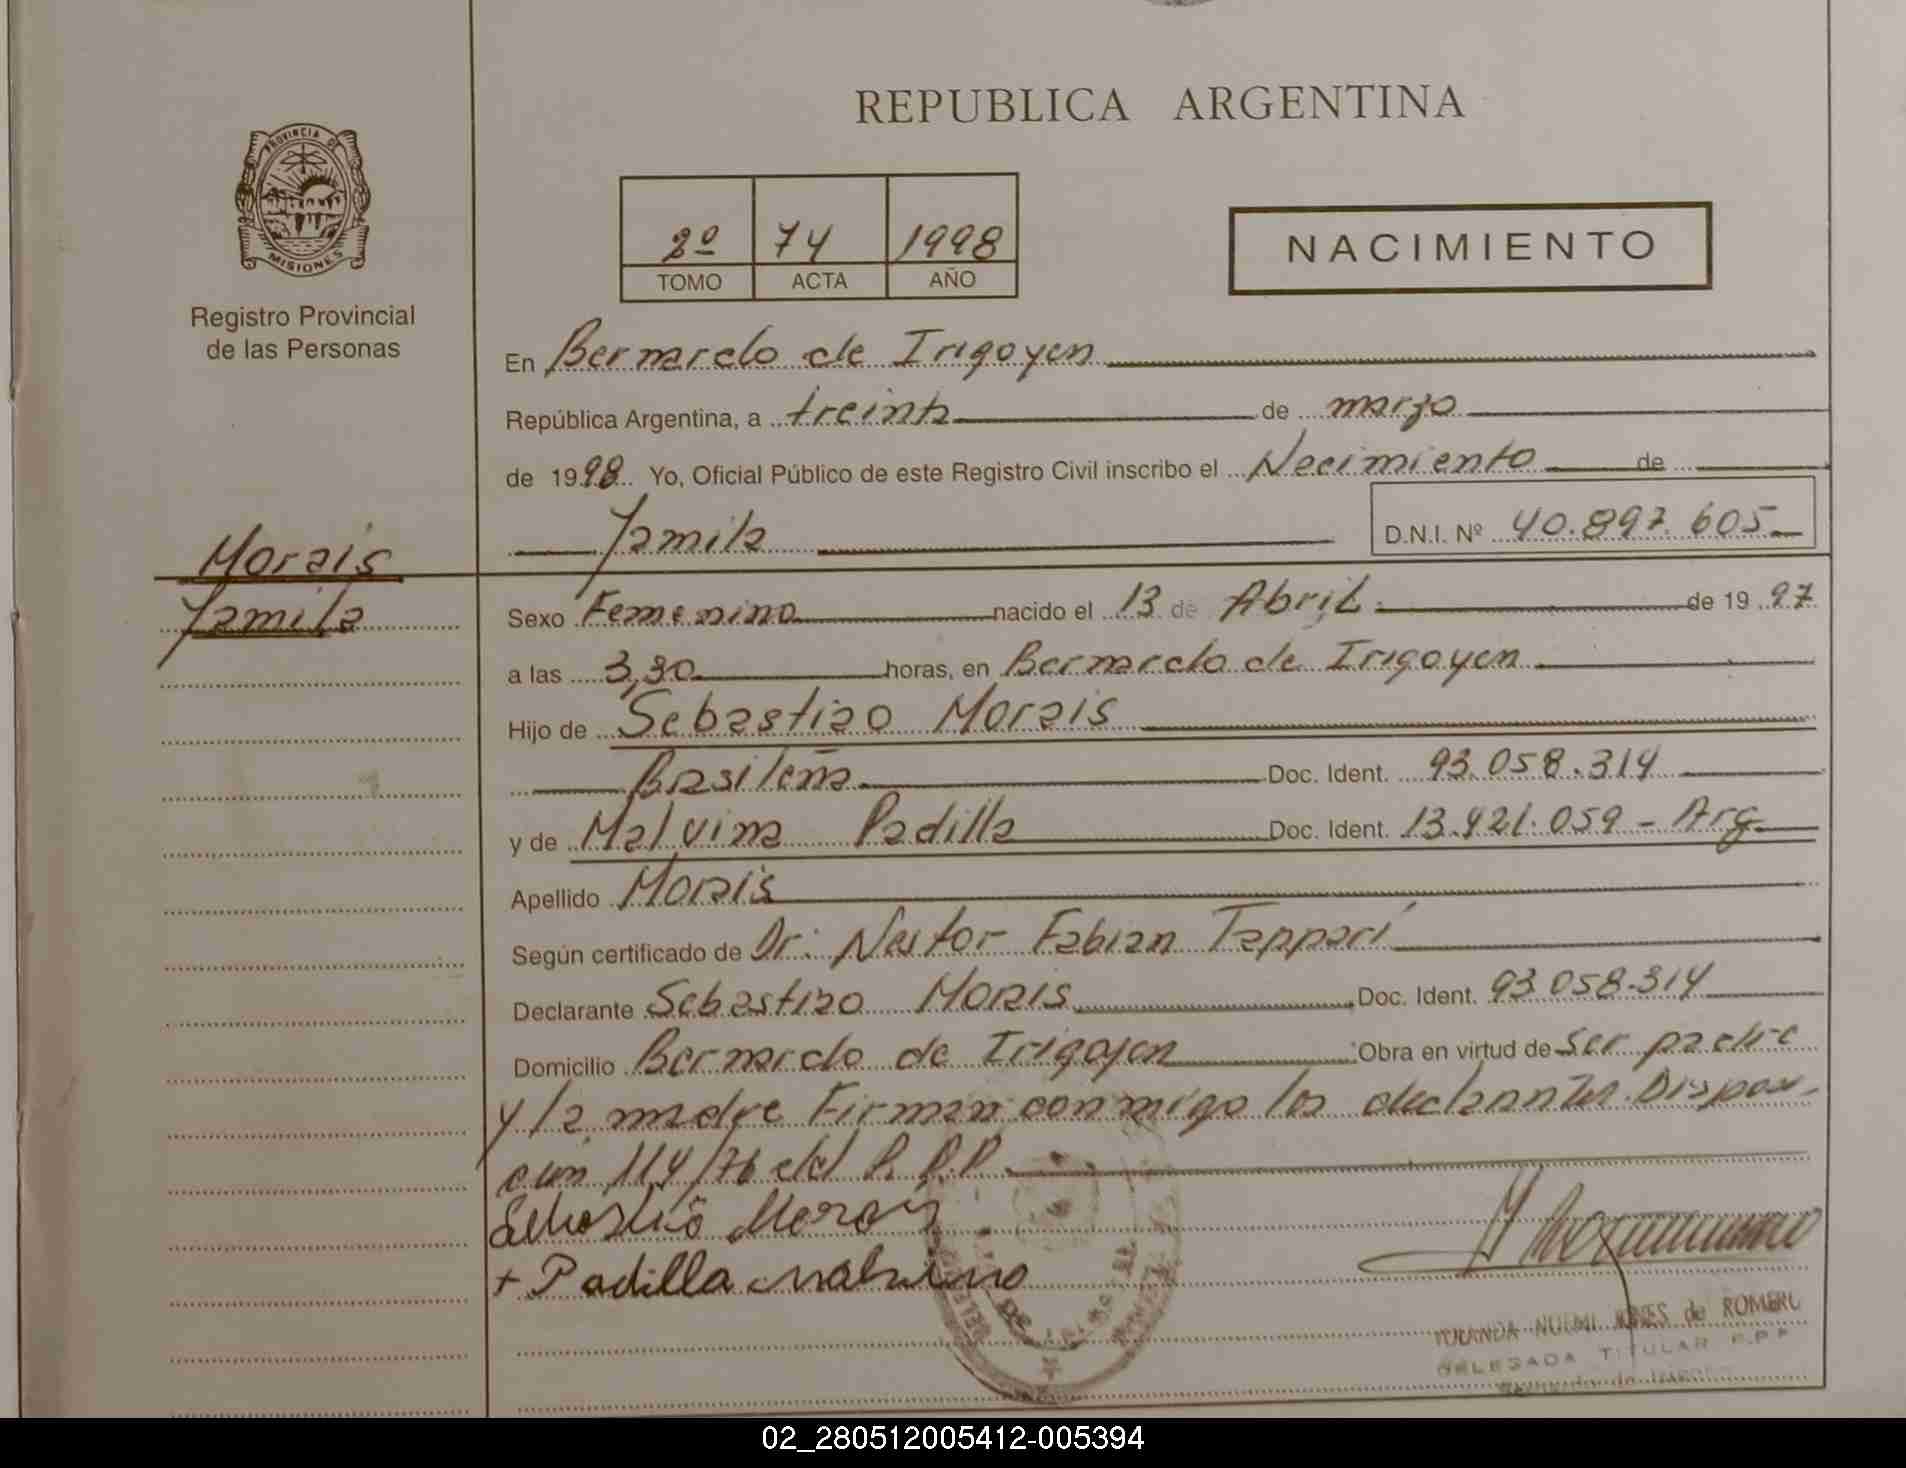 REPUBLICA ARGENTINA
PROVINCIA DE
MISIONES
Registro Provincial
de las Personas
2º 74 1998
TOMO ACTA AÑO
NACIMIENTO
En Bernardo de Irigoyen
República Argentina, a treinta de marzo
de 1998. Yo, Oficial Público de este Registro Civil inscribo el Nacimiento de
Yamila D.N.I. Nº 40.897.605
Morais
Yamila
Sexo Femenino nacido el 13 de Abril de 1997
a las 3,30 horas, en Bernardo de Irigoyen
Hijo de Sebastiao Morais
Brasileña Doc. Ident. 93.058.314
y de Malvina Padilla Doc. Ident. 13.421.059 - Arg
Apellido Morais
Según certificado de Dr: Nestor Fabian Tappari
Declarante Sebastiao Morais Doc. Ident. 93.058.314
Domicilio Bernardo de Irigoyen Obra en virtud de ser padre
y la madre Firman conmigo los declarantes. Disposi-
cion 114/76 del R.P.P.
Sebastião Morais
+ Padilla Malvina
YOLANDA NOEMI de ROMERO
DELEGADA TITULAR R.P.P.
Bernardo de Irigoyen
02_280512005412-005394